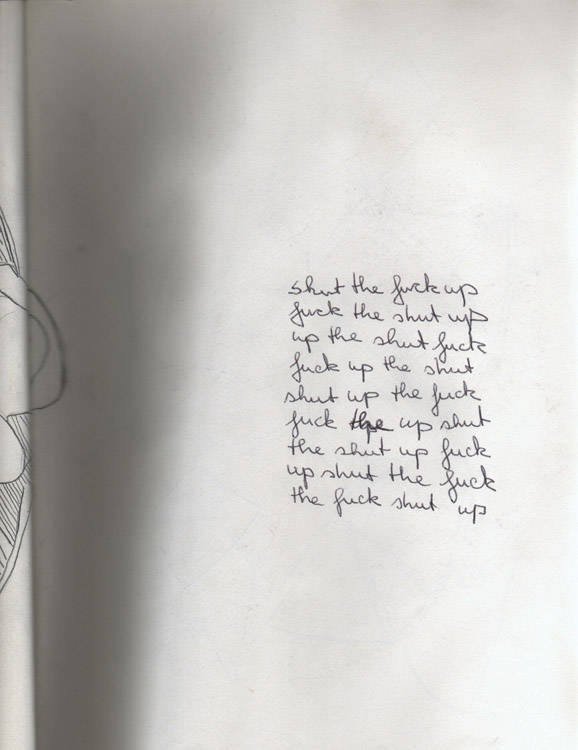 shut the fuck up
fuck the shut up
up the shut fuck
fuck up the shut
shut up the fuck
fuck the up shut
the shut up fuck
up shut the fuck
the fuck shut up